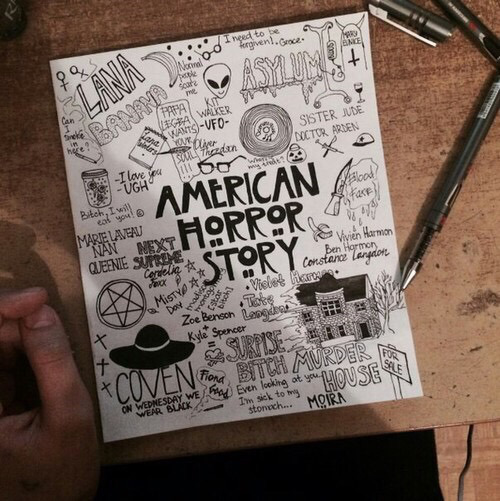 I need to be
forgiven!. Grace.
LANA
BANANA
Normal
people
scare
me
ASYLUM
MARY
EUNICE
Can I
smoke in
here?
PAPA
LEGBA
WANTS
YOUR
SOUL
!!!
KIT
WALKER
-UFO-
Lana
Winters
Oliver
Thredson
SISTER JUDE
DOCTOR ARDEN
-I love you
-UGH
Bitch, I will
eat you! ☺
Blood
Fuck
AMERICAN
HORROR
STORY
MARIE LAVEAU
NAN
QUEENIE
NEXT
SUPREME
Cordelia
Foxx
Vivien Harmon
Ben Harmon
Constance Langdon
MISTY
DAY
• Violet Harmon •
Tate
Langdon
Zoe Benson
+
Kyle Spencer
SURPRISE
BITCH
COVEN
ON WEDNESDAY WE
WEAR BLACK
Fiona
Good
MURDER
HOUSE
FOR
SALE
Even looking at you
I'm sick to my
stomach...
MOIRA